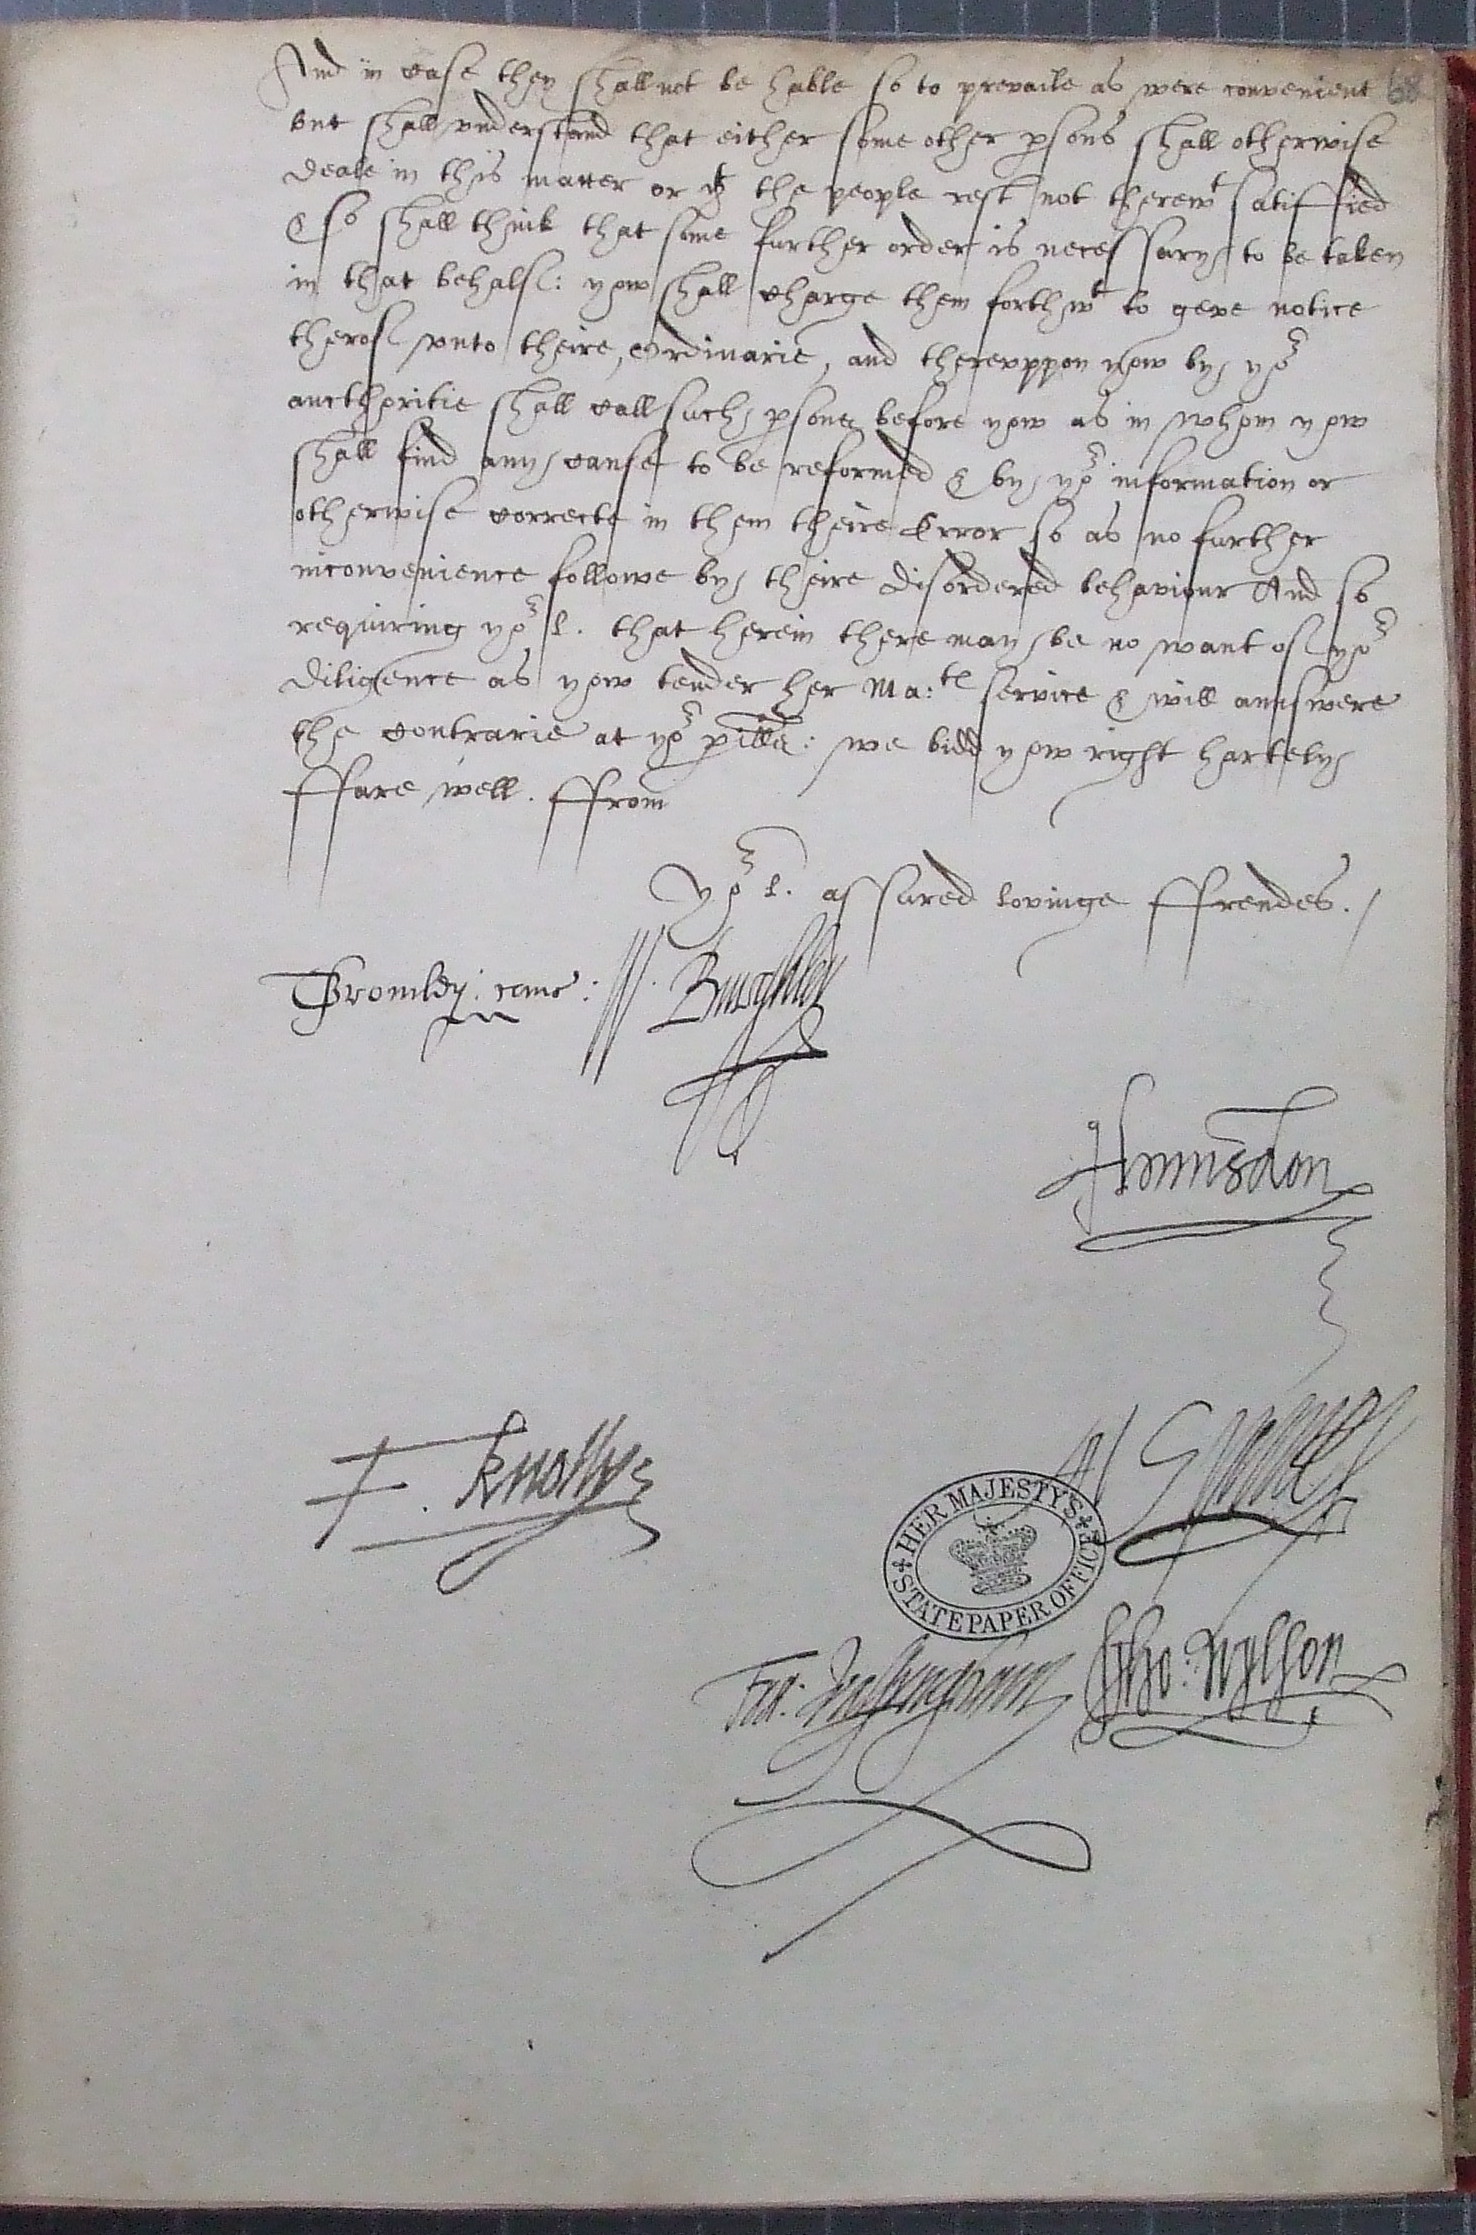 And in case they shall not be hable so to prevaile as were convenient 68
but shall understand that either some other psons shall otherwise
deale in this matter or yf the people rest not therewt satiffied
& so shall think that some further order is necessary to be taken
in that behalf: yow shall charge them forthwt to geve notice
therof unto theire Ordinarie, and thereuppon yow by yor
aucthoritie shall call such psons before yow as in whom yow
shall find any cause to be reformed & by yor information or
otherwise correcte in them theire Error so as no further
inconvenience followe by theire disordered behaviour And so
requiring yor l. that herein there may be no want of yor
diligence as yow tender her Ma:te service & will aunswere
the contrarie at yor pills: we bidd yow right hartely
ffare well. ffrom
Yor l. assured lovinge ffrendes./
T Bromley: canc: W. Burghley
Hunsdon
F. Knollys H Sydney
HER MAJESTY'S STATE PAPER OFFICE
Fra: Walsyngham Tho: Wylson